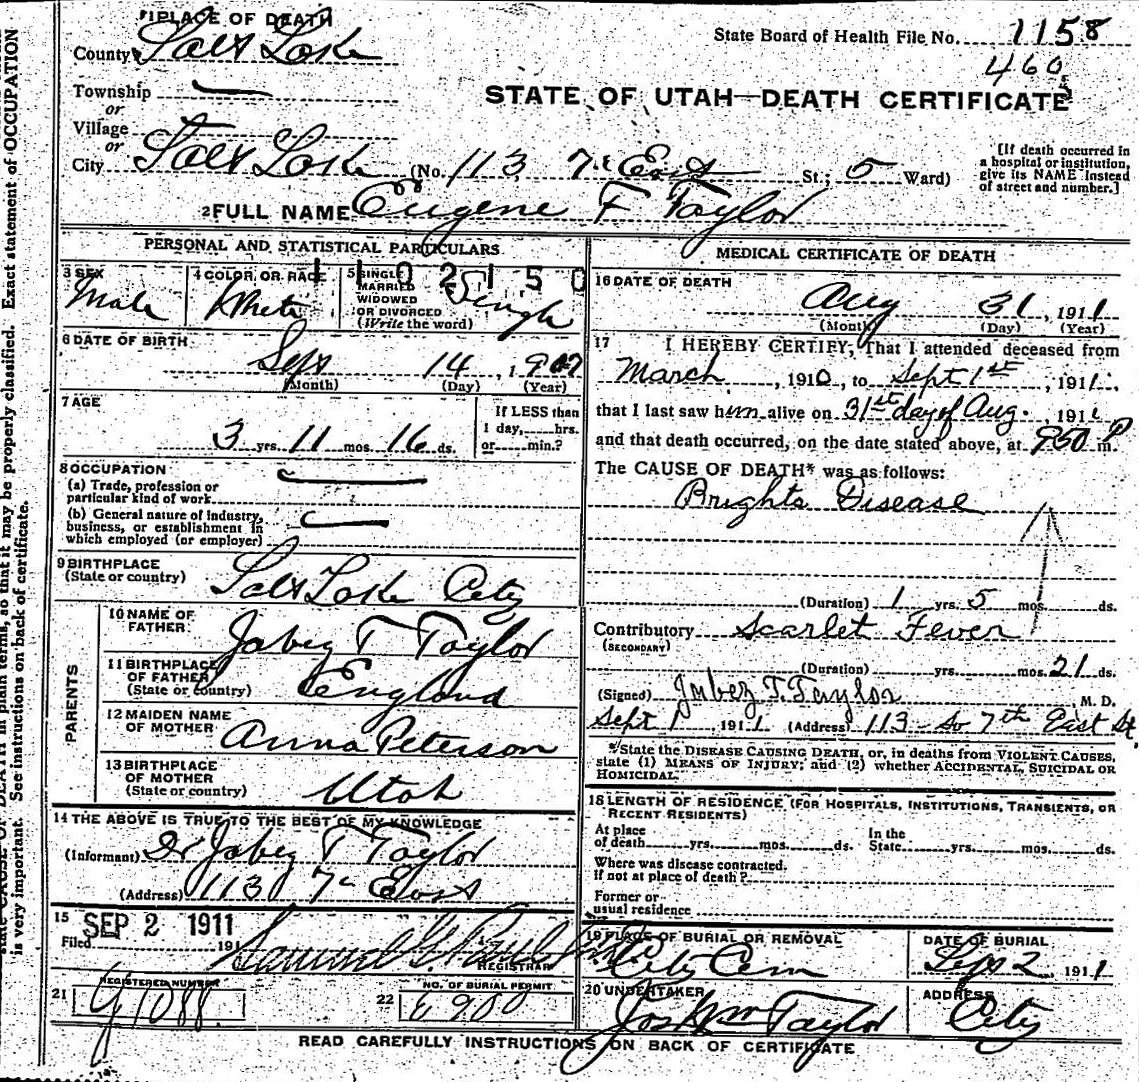 1 PLACE OF DEATH
County Salt Lake
State Board of Health File No. 1158
460
Township
or
Village
or
City Salt Lake (No. 113 7th East St.; 5 Ward)
STATE OF UTAH—DEATH CERTIFICATE
[If death occurred in
a hospital or institution,
give its NAME instead
of street and number.]
2 FULL NAME Eugene F Taylor
PERSONAL AND STATISTICAL PARTICULARS
1102150
3 SEX
Male
4 COLOR OR RACE
White
5 SINGLE
MARRIED
WIDOWED
OR DIVORCED
(Write the word)
Single
6 DATE OF BIRTH
Sept 14, 1907
(Month) (Day) (Year)
7 AGE
3 yrs. 11 mos. 16 ds.
If LESS than
1 day, hrs.
or min.?
8 OCCUPATION
(a) Trade, profession or
particular kind of work
(b) General nature of industry,
business, or establishment in
which employed (or employer)
9 BIRTHPLACE
(State or country)
Salt Lake City
PARENTS
10 NAME OF
FATHER
Jabez T Taylor
11 BIRTHPLACE
OF FATHER
(State or country)
England
12 MAIDEN NAME
OF MOTHER
Anna Peterson
13 BIRTHPLACE
OF MOTHER
(State or country)
Utah
14 THE ABOVE IS TRUE TO THE BEST OF MY KNOWLEDGE
(Informant) Dr Jabez T Taylor
(Address) 113 7th East
15
Filed SEP 2 1911 191
Samuel G. Paul
REGISTRAR
21 REGISTERED NUMBER
G1088
22 NO. OF BURIAL PERMIT
6980
MEDICAL CERTIFICATE OF DEATH
16 DATE OF DEATH
Aug 31, 1911
(Month) (Day) (Year)
17 I HEREBY CERTIFY, That I attended deceased from
March, 1910, to Sept 1st, 1911,
that I last saw him alive on 31st day of Aug. 1911
and that death occurred, on the date stated above, at 950 P m.
The CAUSE OF DEATH* was as follows:
Brights Disease
(Duration) 1 yrs. 5 mos. ds.
Contributory Scarlet Fever
(SECONDARY)
(Duration) yrs. mos. 21 ds.
(Signed) Jabez T. Taylor M. D.
Sept 1, 1911 (Address) 113 So 7th East St.
*State the DISEASE CAUSING DEATH, or, in deaths from VIOLENT CAUSES,
state (1) MEANS OF INJURY; and (2) whether ACCIDENTAL, SUICIDAL OR
HOMICIDAL.
18 LENGTH OF RESIDENCE (FOR HOSPITALS, INSTITUTIONS, TRANSIENTS, OR
RECENT RESIDENTS)
At place
of death yrs. mos. ds.
In the
State yrs. mos. ds.
Where was disease contracted,
if not at place of death?
Former or
usual residence
19 PLACE OF BURIAL OR REMOVAL
City Cem
DATE OF BURIAL
Sep 2, 1911
20 UNDERTAKER
Jos Wm Taylor
ADDRESS
City
READ CAREFULLY INSTRUCTIONS ON BACK OF CERTIFICATE
state CAUSE OF DEATH in plain terms, so that it may be properly classified. Exact statement of OCCUPATION
is very important. See instructions on back of certificate.